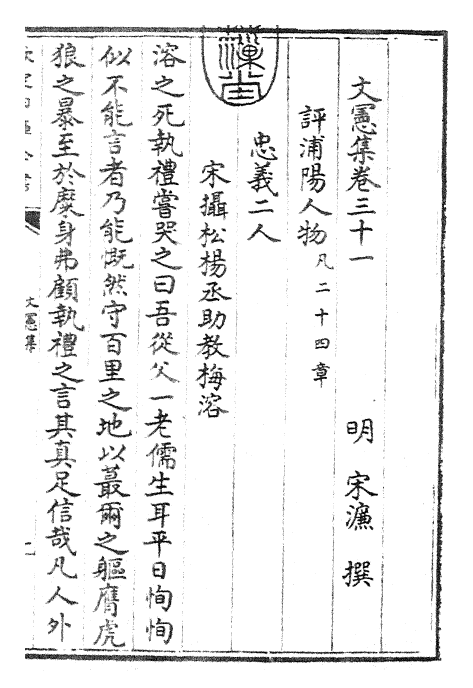 文憲集卷三十一
明 宋濂 撰
評浦陽人物凡二十四章
忠義二人
宋攝松楊丞助教梅溶
溶之死執禮嘗哭之曰吾從父一老儒生耳平日恂恂
似不能言者乃能慨然守百里之地以蕞爾之軀膺虎
狼之暴至於糜身弗顧執禮之言其真足信哉凡人外
文憲集